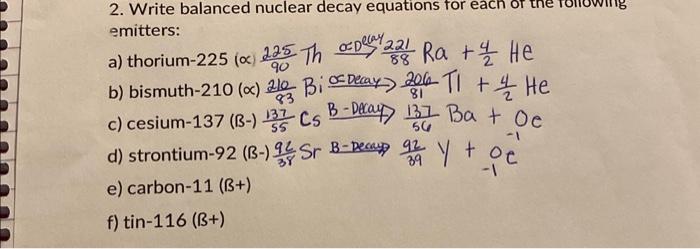 2. Write balanced nuclear decay equations for each of the following
emitters:
a) thorium-225 (∝) 225/90 Th ∝Decay→ 221/88 Ra + 4/2 He
b) bismuth-210 (∝) 210/83 Bi ∝Decay→ 206/81 Tl + 4/2 He
c) cesium-137 (ß-) 137/55 Cs B-Decay→ 137/56 Ba + 0e -1
d) strontium-92 (ß-) 92/38 Sr B-Decay→ 92/39 Y + 0e -1
e) carbon-11 (ß+)
f) tin-116 (ß+)